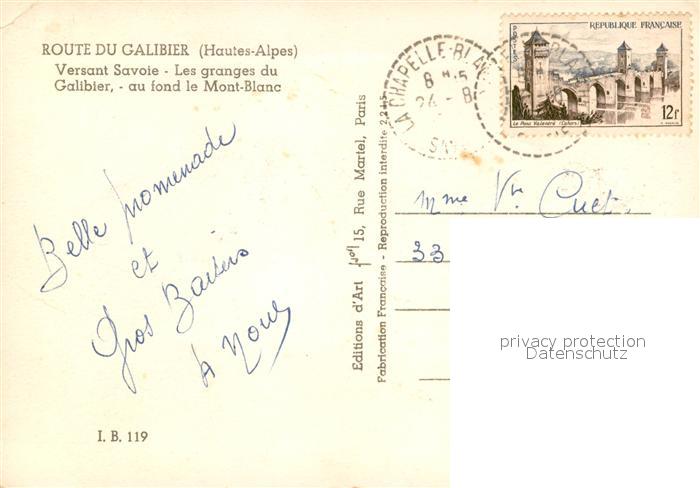 ROUTE DU GALIBIER (Hautes-Alpes)
Versant Savoie - Les granges du
Galibier, - au fond le Mont-Blanc
Belle promenade
et
Gros Baisers
A
I. B. 119
Editions d'Art 15, Rue Martel, Paris
Fabrication Française - Reproduction interdite
LA CHAPELLE-BLAN
8 H 5
24 - 8
POSTES
REPUBLIQUE FRANÇAISE
Le Pont Valentré (Cahors)
12F
Mme Vve Cuet
33
privacy protection
Datenschutz